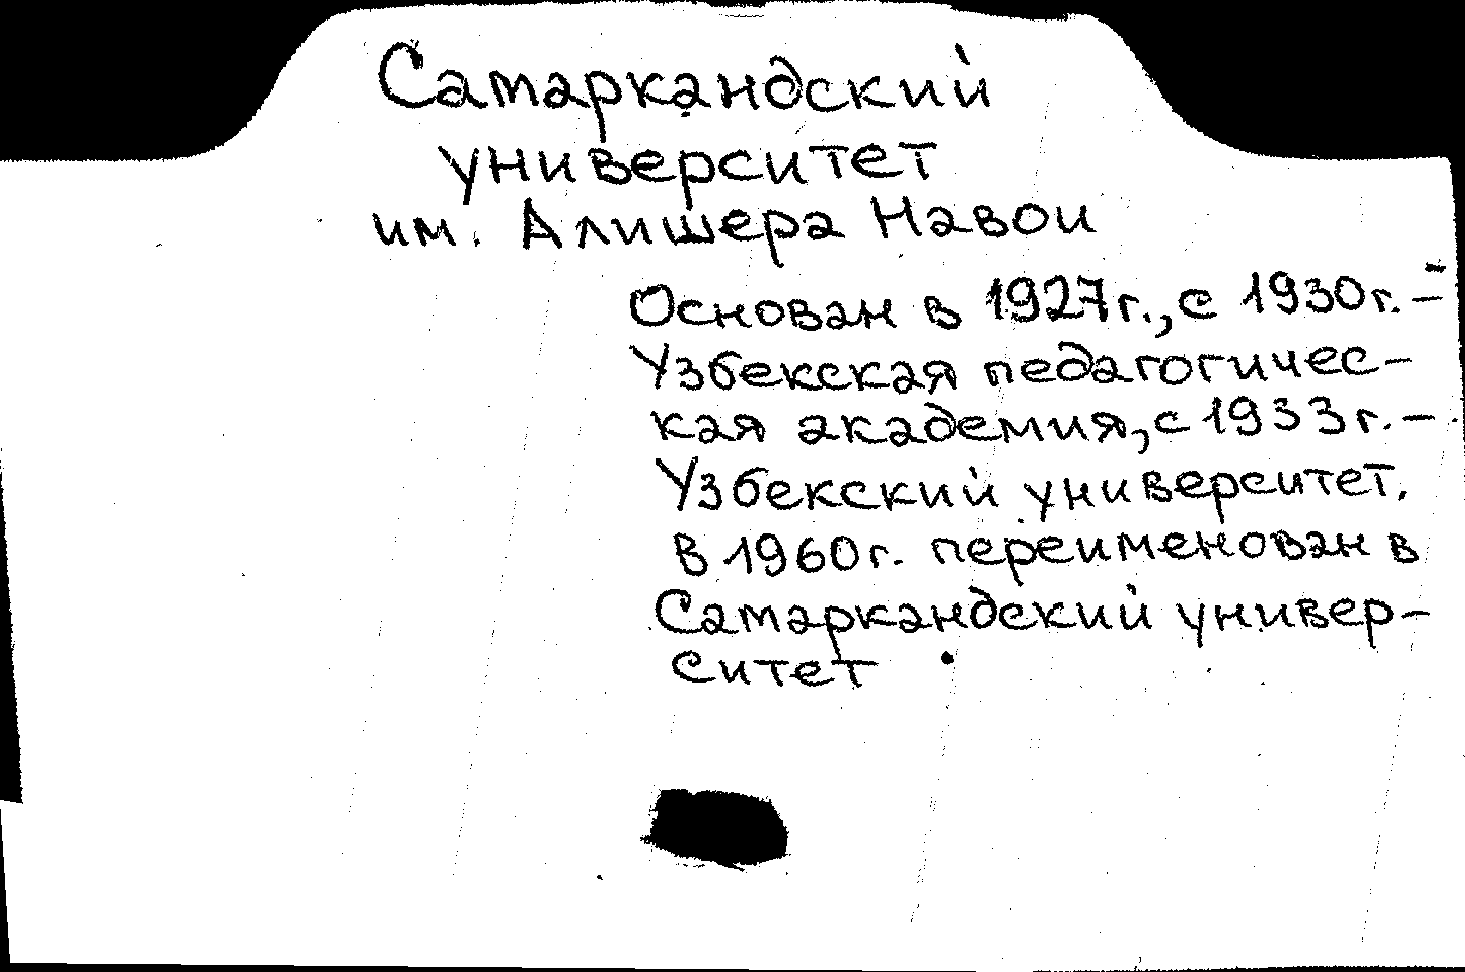 Самаркандский
университет
им. Алишера Навои
Основан в 1927г., с 1930г. –
Узбекская педагогичес-
кая академия, с 1933г. –
Узбекский университет.
В 1960г. переименован в
Самаркандский универ-
ситет